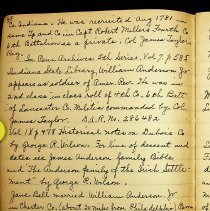 55
Co. Indiana. He was recruited Aug 1781 in
same Co and Co in Capt Robert Millers Fourth Co
6th Battalion as a private. Col James Taylor
Reg.
In Penn Archives 5th Series. Vol 7, p 585
Indiana State Library, William Anderson Jr.
appears as soldier of Amer Rev. He was in
2nd class in class roll of 4th Co, 6th Batt
of Lancaster Co. Militia commanded by Col.
James Taylor. D.A.R. No. 286482
Vol 18 p 478 Historical notes on Dubois Co
by George R. Wilson. For line of descent and
dates see James Anderson family Bible
and The Anderson family of the Irish Settle
ment" by George R. Wilson.
Jane Bell married William Anderson, Jr
in Chester Co. (about 30 miles from Philadelphia) Penn